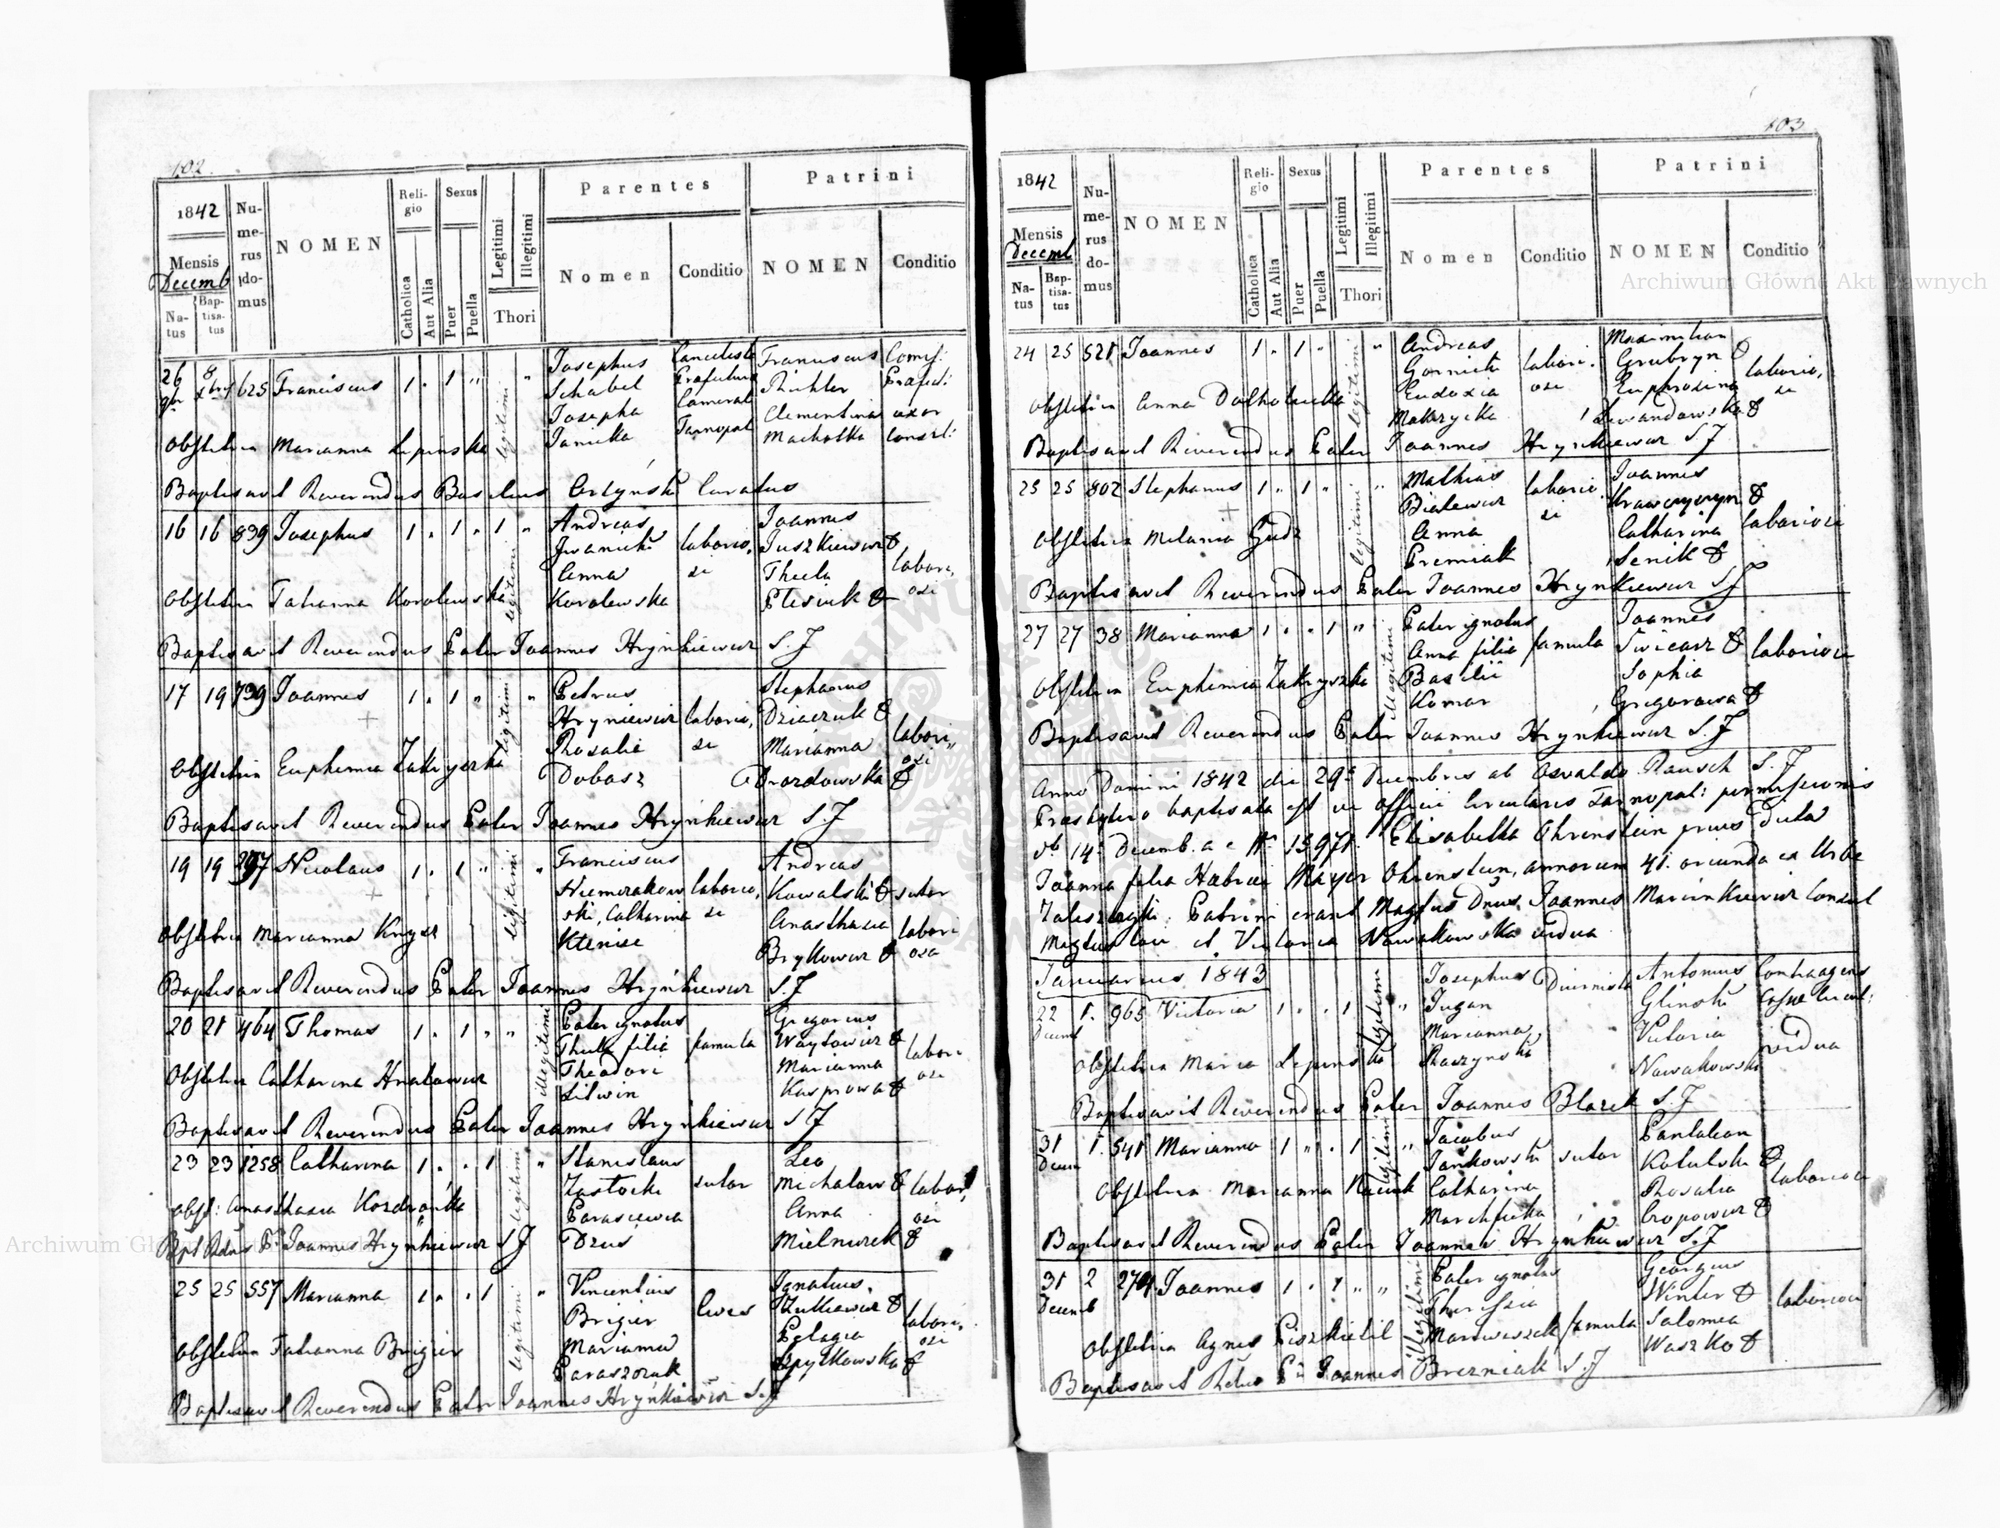 102.
1842
Mensis
Decemb
Natus
Baptisatus
Numerus domus
NOMEN
Religio
Catholica
Aut Alia
Sexus
Puer
Puella
Legitimi
Illegitimi
Thori
Parentes
Nomen
Conditio
Patrini
NOMEN
Conditio
26 8 625 Franciscus 1 " 1 " legitimi " Josephus Franciscus
Schabel Richter
Josepha Cameral Clementina uxor
Janicka Tarnopol Machotka
Obstetrix Marianna Lepinska
Baptisavit Reverendus Basilius Curatus
16 16 839 Josephus 1 " 1 " 1 " legitimi Andreas Joannes
Iwanicki laborio, Juszkiewicz &
Anna si Thecla labori,
Korolewska osi
Obstetrix Tatianna Korolewska
Baptisavit Reverendus Pater Joannes Hrynkiewicz S.J
17 19 739 Joannes 1 " 1 " legitimi " Petrus Stephanus
Hryniewicz laborio, Dziaczuk &
Rosalia si Marianna labori,
Dobosz Drozdowska & osi
Obstetrix Euphemia Zakryszka
Baptisavit Reverendus Pater Joannes Hrynkiewicz S.J
19 19 Nicolaus 1 " 1 " legitimi " Franciscus Andreas
Niemirakow laborio, Kowalski & sutor
ski, Catharina si Anasthasia labori
Brykowicz & osa
Obstetrix Marianna
Baptisavit Reverendus Pater Joannes Hrynkiewicz S.J
20 21 464 Thomas 1 " 1 " " illegitimi Pater ignotus Gregorius
Thecla filia famula Woytowicz &
Theodori Marianna labori
Litwin Kasprowa & osi
Obstetrix Catharina
Baptisavit Reverendus Pater Joannes Hrynkiewicz S J
23 23 1258 Catharina 1 " " 1 legitimi " Stanislaus Leo
Zastocki sutor Michalow & labori,
Parascewia Anna osi
Dzus Mielniczek &
Obst: Anasthasia
Bpt Rdus P. Joannes Hrynkiewicz S J
25 25 557 Marianna 1 " " 1 legitimi " Vincentius Ignatius
Brigier cives Zulkiewicz & labori,
Marianna Pelagia osi
Paraszczuk Spytkowska &
Obstetrix Tatianna Brigier
Baptisavit Reverendus Pater Joannes Hrynkiewicz S.J
103
1842
Mensis
Decemb
Natus
Baptisatus
Numerus domus
NOMEN
Religio
Catholica
Aut Alia
Sexus
Puer
Puella
Legitimi
Illegitimi
Thori
Parentes
Nomen
Conditio
Patrini
NOMEN
Conditio
24 25 521 Joannes 1 " 1 " legitimi " Andreas Maximilian
Gornicki labori. Grubryn & laborio,
Eudoxia osi Euphrosina si
Mokrzycka Lewandowska &
Obstetrix Anna
Baptisavit Reverendus Pater Joannes Hrynkiewicz S.J
25 25 802 Stephanus 1 " 1 " legitimi " Mathias Joannes
Bialewicz laborio Krawczyszyn &
Anna si Catharina laboriosi
Premiak Senik &
Obstetrix Melania Gudz
Baptisavit Reverendus Pater Joannes Hrynkiewicz S J
27 27 38 Marianna 1 " " 1 " illegitimi Pater ignotus Joannes
Anna filia famula Swicarz & laboriosi
Basilii Sophia
Komar Grigorowa &
Obstetrix Euphemia Zakryszka
Baptisavit Reverendus Pater Joannes Hrynkiewicz S.J
Anno Domini 1842 die 29a Decembris ab Osvaldo Rausch S.J
Presbytero baptisata est vi officii Circularis Tarnopol: permissionis
db 14 Decemb. a c No 15971. Elisabetha Ohrenstein prius dicta
Joanna filia Hebrei Mayer Ohrenstein, annorum 41. oriunda ex Urbe
Zaleszczyki. Patrini erant Magfus Dnus. Joannes Marcinkiewicz Consul
et Victoria Nowakowska vidua
Januarius 1843
22 1. 965 Victoria 1 " " 1 legitimi " Josephus Diurnista Antonius
Decemb Jugan Glinski
Marianna Victoria vidua
Raszynska Nowakowska
Obstetrix Maria Lepinska
Baptisavit Reverendus Pater Joannes Blazek S.J
31 1. 541 Marianna 1 " " 1 legitimi " Jacobus Pantaleon
Decem Jankowski sutor Kotulski &
Catharina Rosalia laboriosi
Cropowicz &
Obstetrix Marianna
Baptisavit Reverendus Pater Joannes Hrynkiewicz S.J
31 2 274 Joannes 1 " 1 " " illegitimi Pater ignotus Georgius
Decemb Theressia Winter & laboriosi
famula Salomea
Waszko &
Obstetrix Agnes
Baptisavit Joannes Brezniak S.J
Archiwum Główne Akt Dawnych